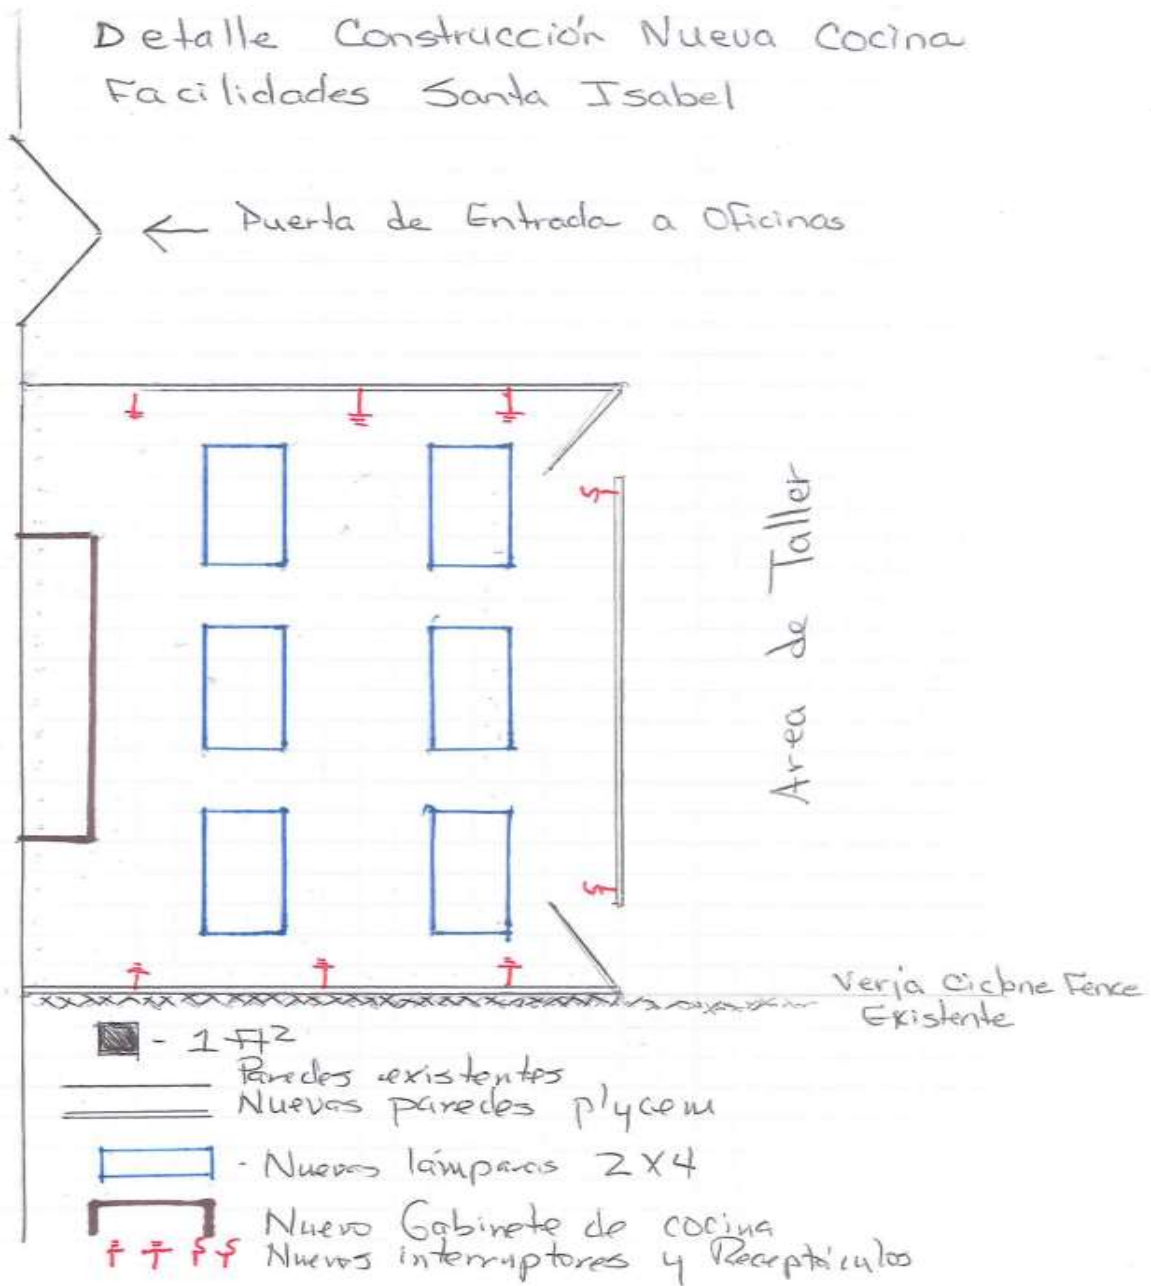 Detalle Construcción Nueva Cocina
Facilidades Santa Isabel
← Puerta de Entrada a Oficinas
Area de Taller
Verja Ciclone Fence
Existente
- 1 ft2
Paredes existentes
Nuevas paredes plycem
- Nuevas lámparas 2X4
Nuevo Gabinete de cocina
Nuevos interruptores y Receptáculos